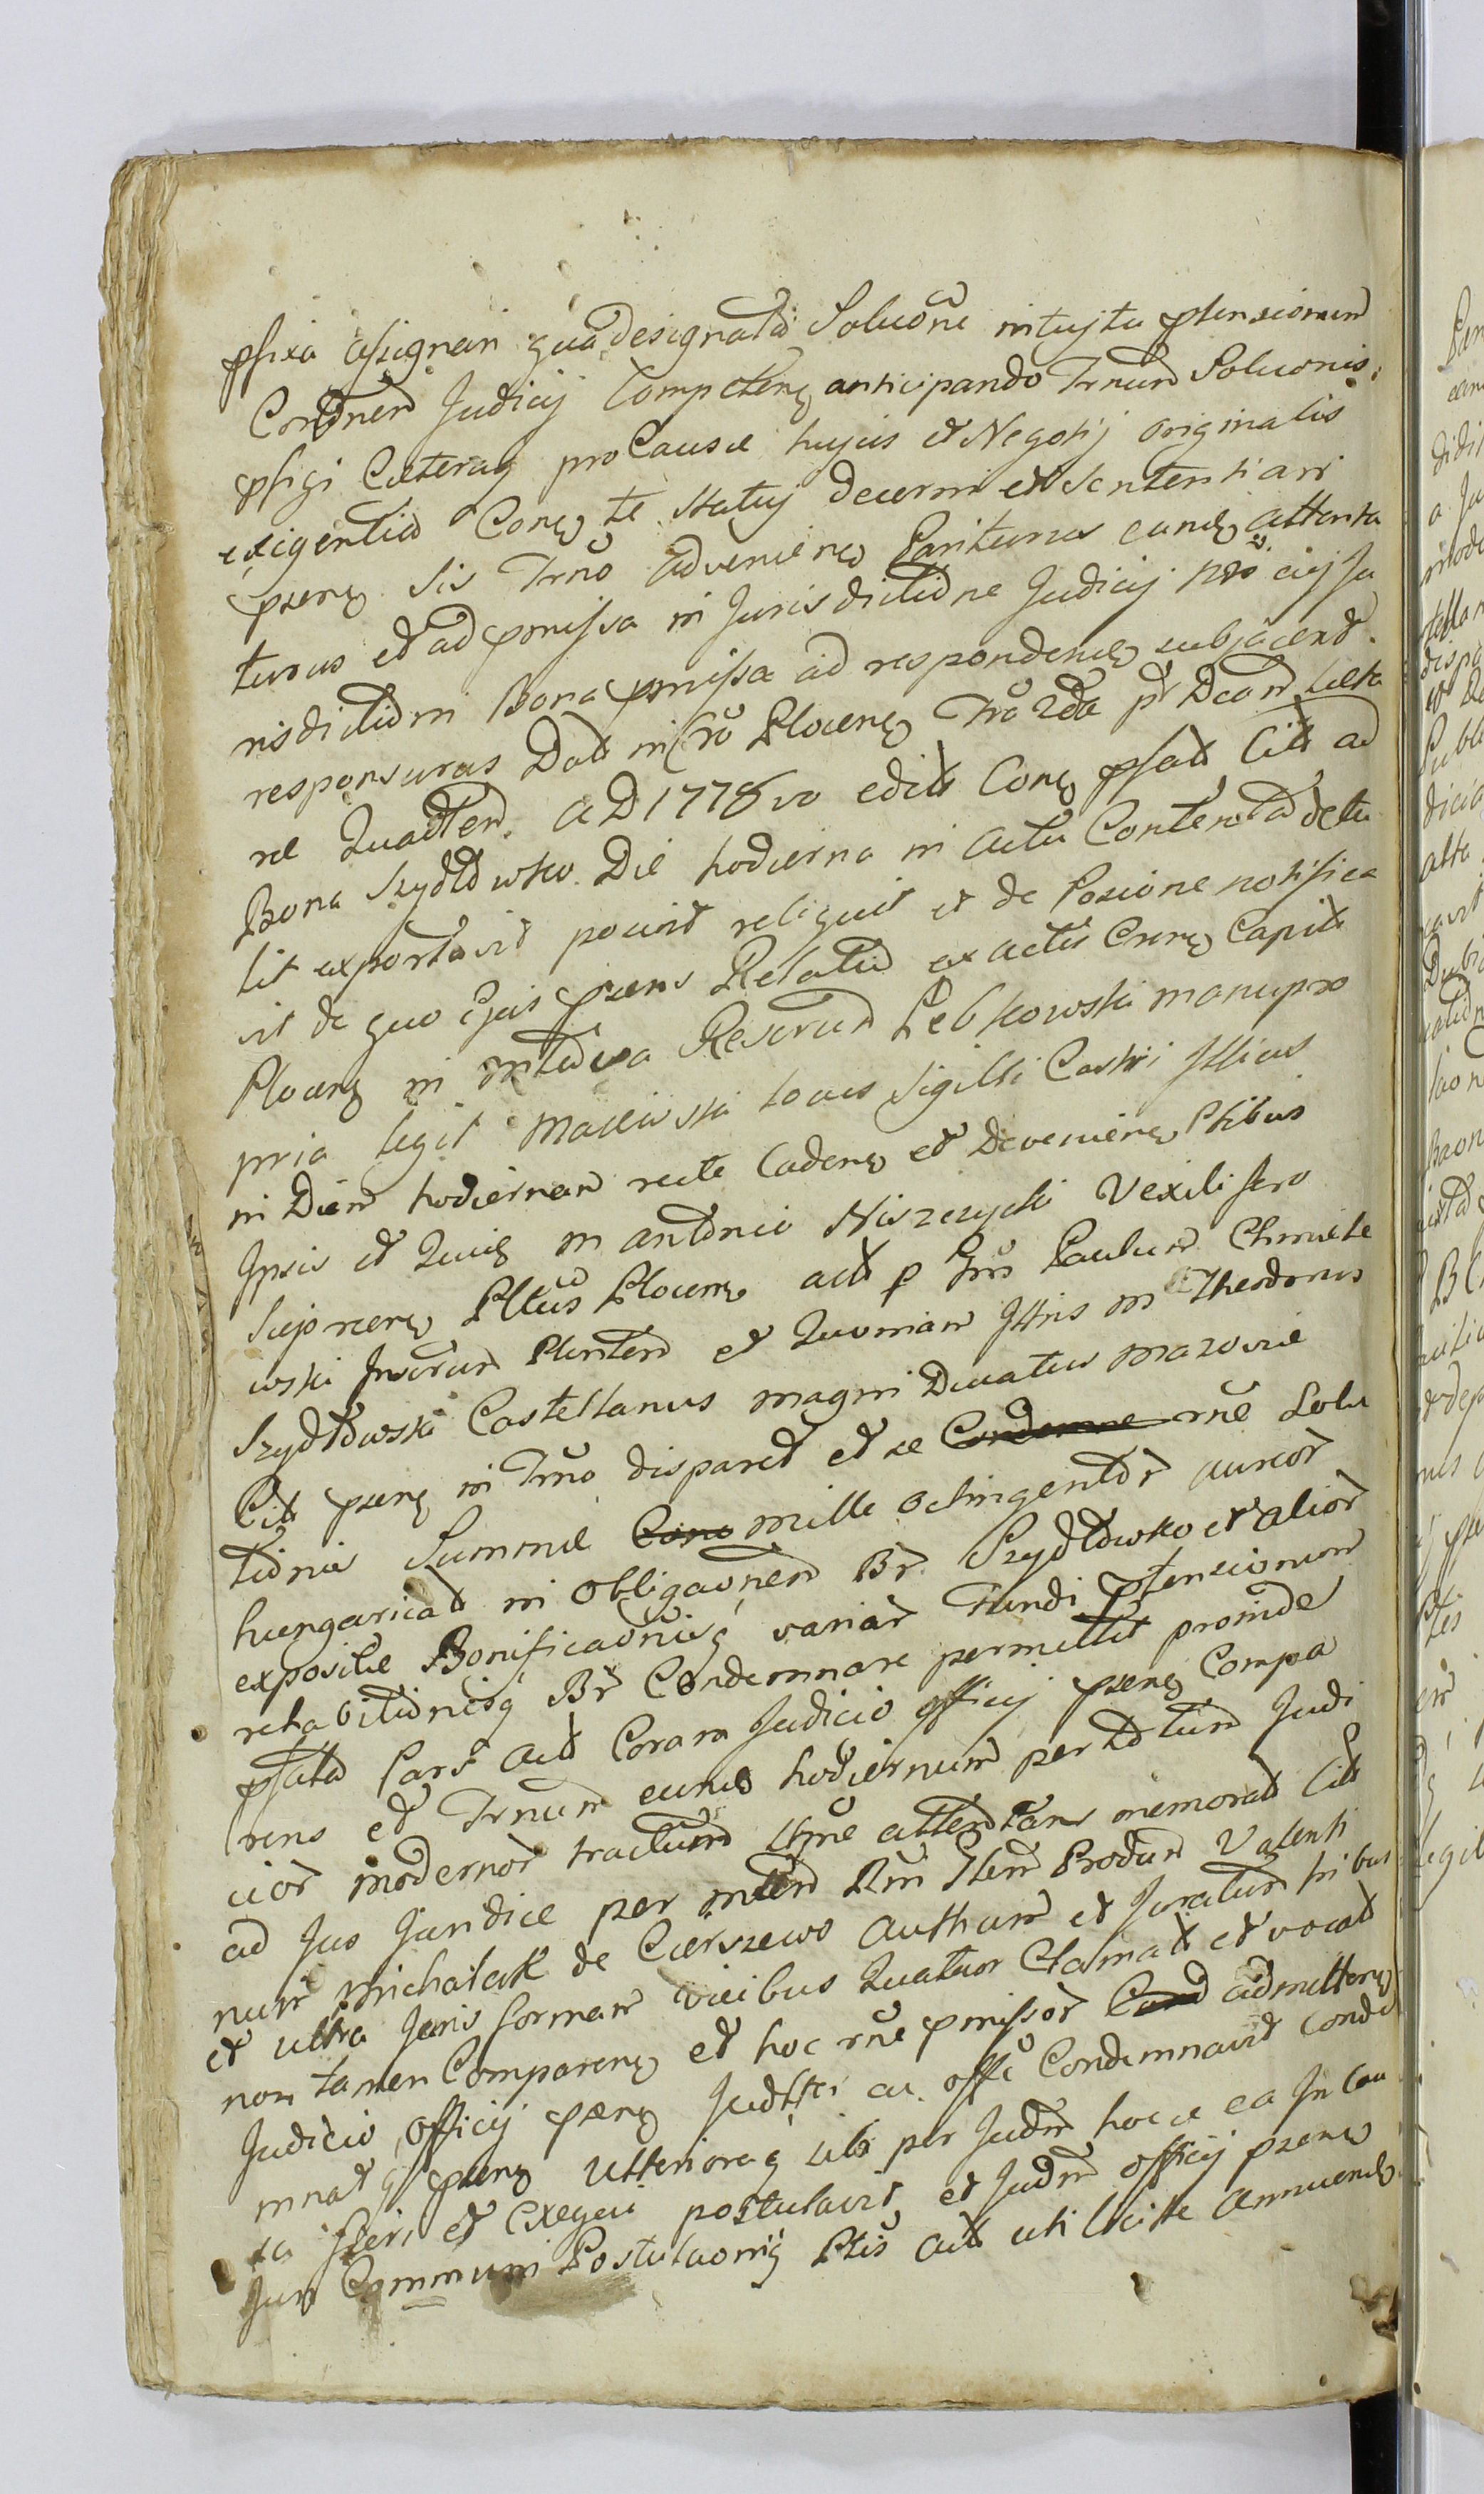 pfixa assignari qua designata Soluõne intuitu ptensionum
Condnem Judicij Competenq anticipando Trnum Soluonis
pfigi Caeteraq pro Causae hujus et Negotij originalis
exigentia Conq te statuj decerni et Sententiari
psenq sis Trno advenienq Pariturus eandq attenta
turus et ad pmissa in Jurisdictione Judicij nro cuj Ju
risdictioni Bona pmissa ad respondendq subjacent
responsurus Datt in Cro Plocenq Fra 2da pt Dcam Laeta
re Quadten. A D 1778vo editt Conq psatt Citt ad
Bona Szydłowko Die hodierna in actu Contenta detu
lit exportavit posuit reliquit et de Posione notifica
vit de quo Ejus psens Relatio ex actis Crenq Capitt
Plocenq in mtdiusa Reserum Lebkowski manu pro
pria legit Makowski Locus Sigilli Castri Illius
in Diem hodiernam recte Cadenq et Devenienq Ptibus
Ipsis et Quidq M Antonio Niszczycki Vexilifero
Sieprcenq Pttus Plocenq actt p Grm Paulum Chmiele
wski Inscrum Plentem et Quoniam Illris M Theodorus
Szydłowski Castellanus Magni Ducatus Mazoviae
Citt psenq in Trno disparet et se Condemne rñe Solu
tionis Summae Cone mille octingentor aureor
hungaricat in obligaonem Br. Szydłowko et alior
expositae Bonificaonisq variar Fundi ptensionum
rehabitionisq Br Condemnare permittit proinde
psata Pars Actt Coram Judicio officij psenq Compa
rens et Trnum eundq hodiernum per totum Judi
cior modernor tractum Ittme attentans memorat Citt
ad Jus Juridice per mtem Rm Item Produm Valenti
num Michalak de Cierszewo Authum et Juratum tribus
et ultra Juris formam vicibus Quatuor Clamat et vocat
non tamen Comparenq et hoc rñe pmissor Cond admittenq
Judicio officij psenq Judtti ac offi Condemnavit conde
mnatq psenq Ulterioraq sibi per Judm hoc ce ea In Cau
sa fieri et Exequi postulavit et Judm officij psenq
Juri Communi Postulaoniq Ptis Actt uti licitte Annuendq